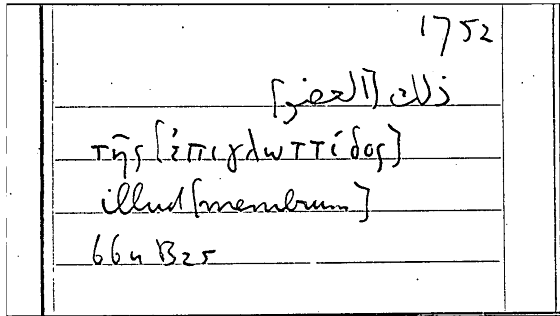 1752
ذلك [العضو]
τῆς [ἐπιγλωττίδος]
illud [membrum]
664 B25